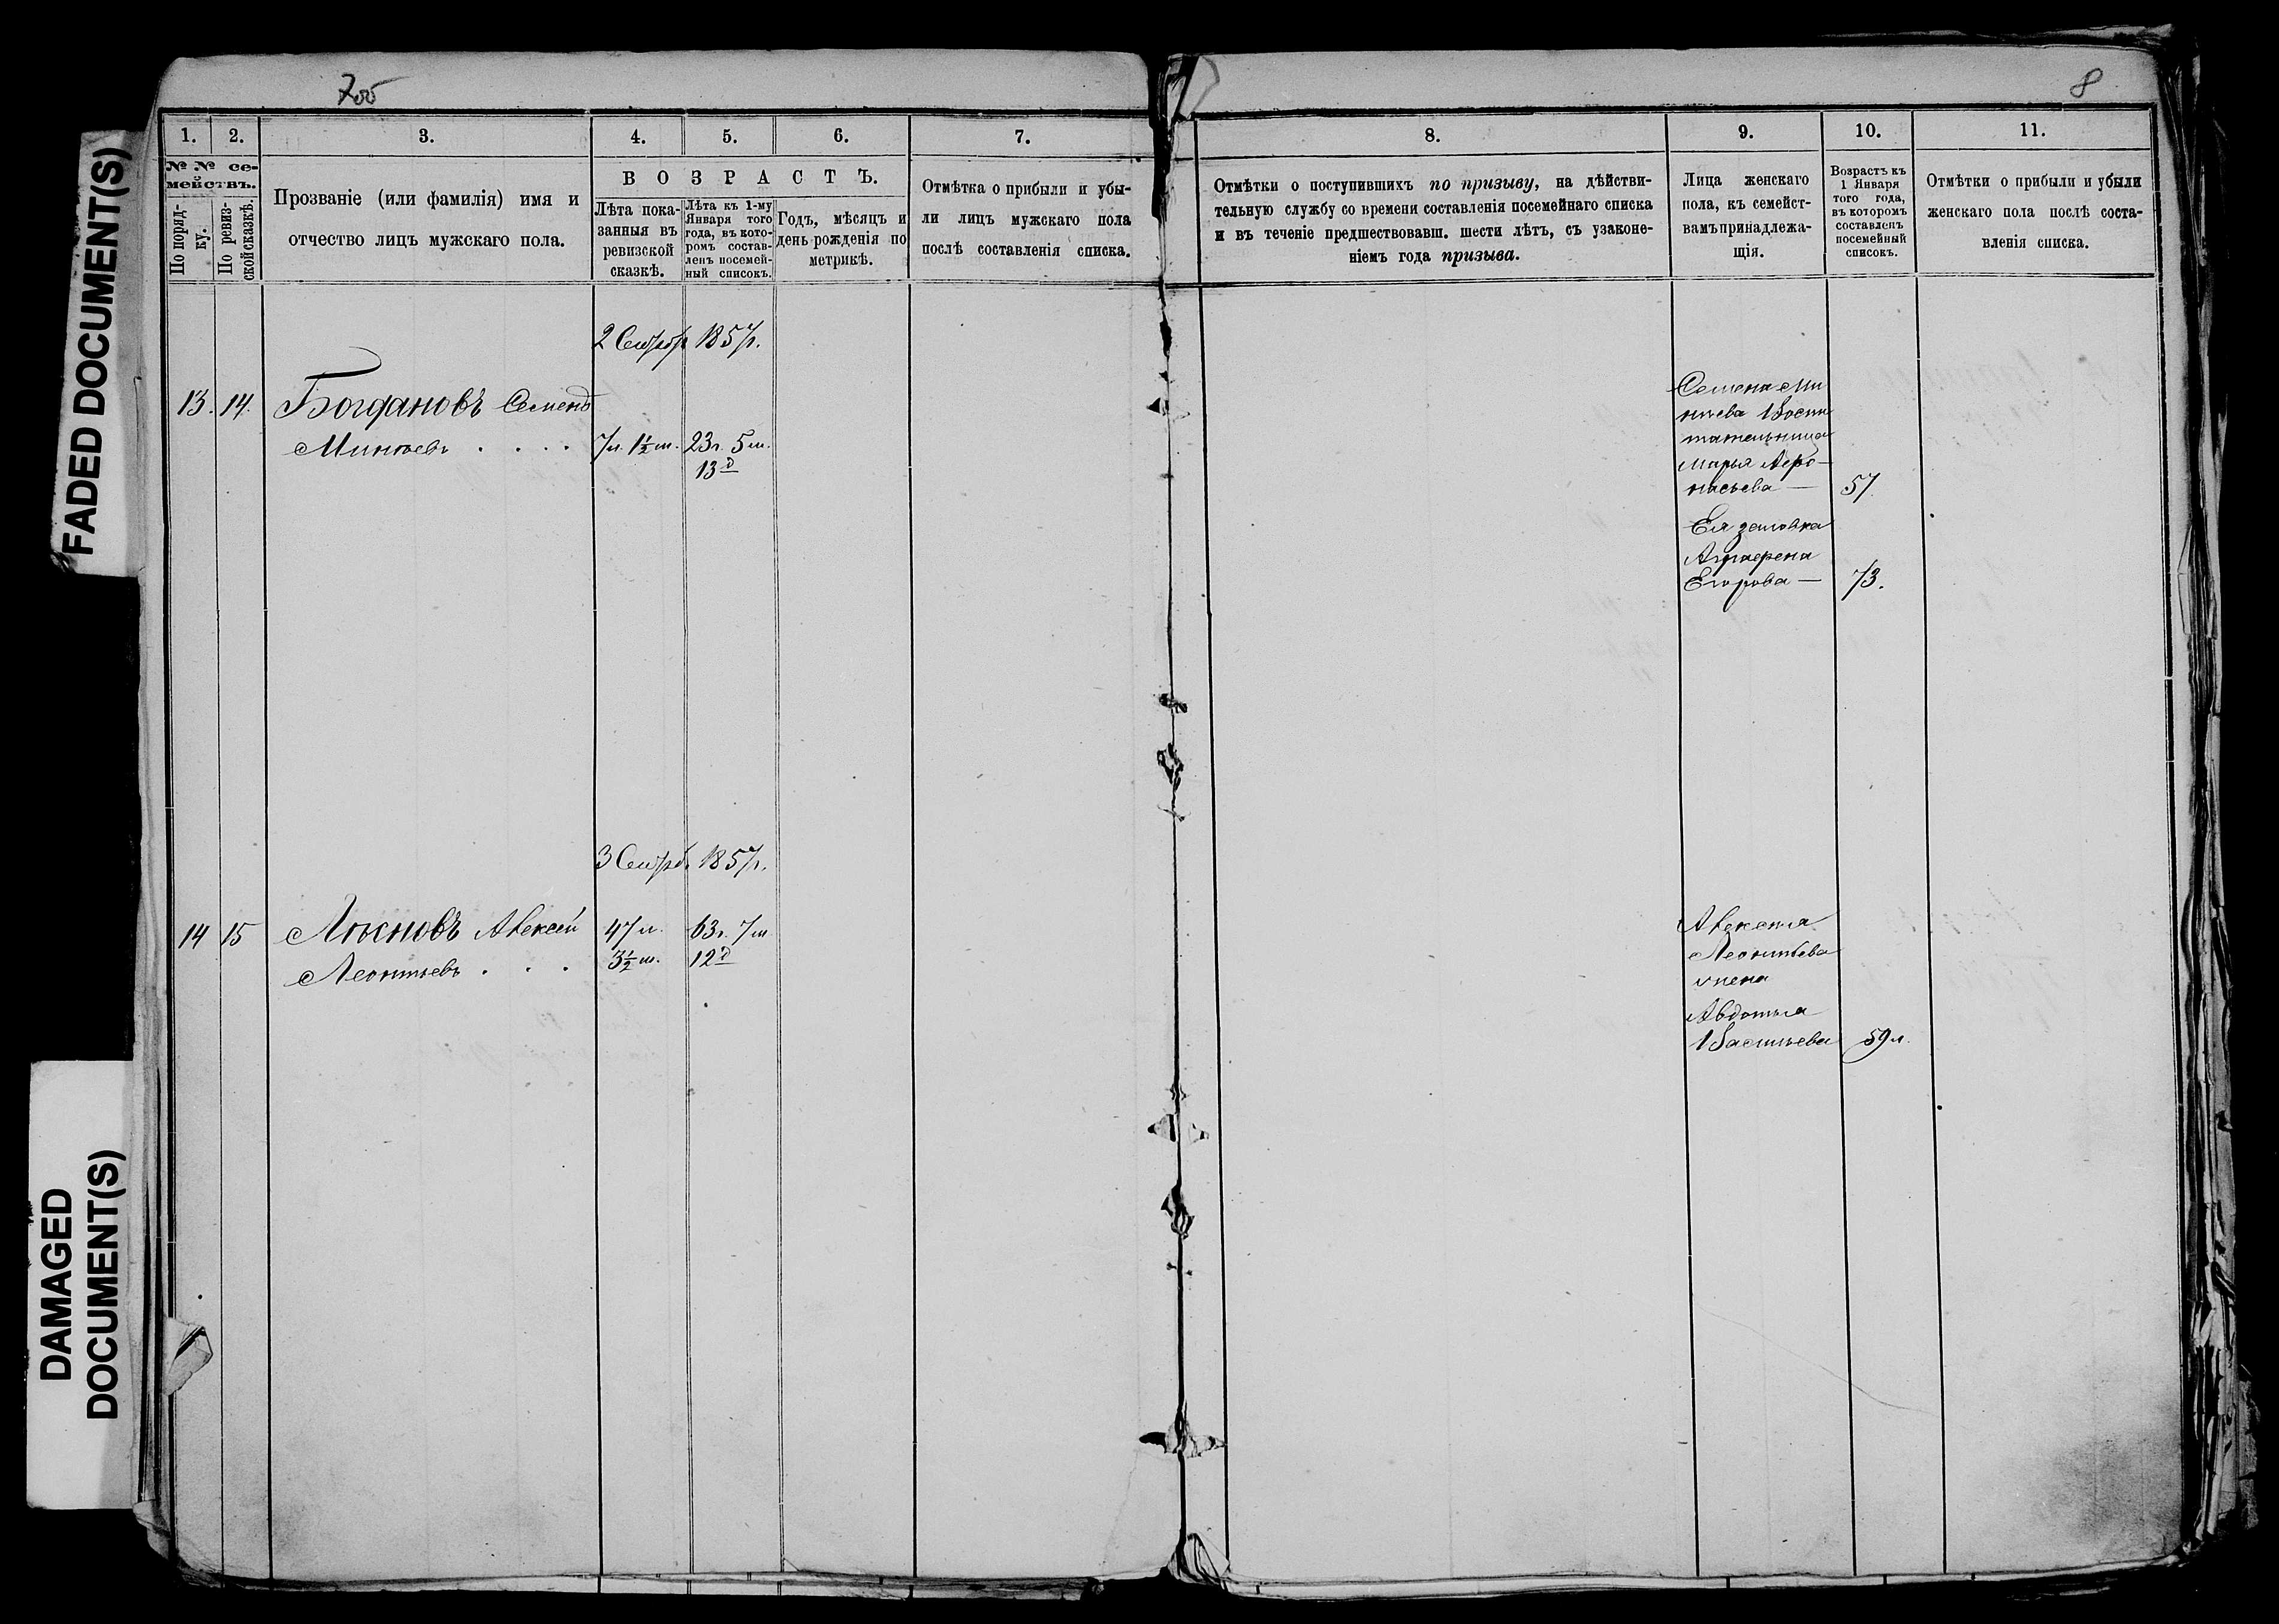 7об
8
FADED DOCUMENT(S)
DAMAGED
DOCUMENT(S)
1. 2. 3. 4. 5. 6. 7.
№ № се-
мействъ.
По поряд-
ку.
По ревиз-
ской сказкѣ.
Прозваніе (или фамилія) имя и
отчество лицъ мужскаго пола.
ВОЗРАСТЪ.
Лѣта пока-
занныя въ
ревизской
сказкѣ.
Лѣта къ 1-му
Января того
года, въ кото-
ромъ состав-
ленъ посемей-
ный списокъ.
Годъ, мѣсяцъ и
день рожденія по
метрикѣ.
Отмѣтка о прибыли и убы-
ли лицъ мужскаго пола
послѣ составленія списка.
8. 9. 10. 11.
Отмѣтки о поступившихъ по призыву, на дѣйстви-
тельную службу со времени составленія посемейнаго списка
и въ теченіе предшествовавш. шести лѣтъ, съ узаконе-
ніемъ года призыва.
Лица женскаго
пола, къ семейст-
вамъ принадлежа-
щія.
Возрастъ къ
1 Января
того года,
въ которомъ
составленъ
посемейный
списокъ.
Отмѣтки о прибыли и убыли
женскаго пола послѣ соста-
вленія списка.
2 1857г.
13. 14. Богдановъ Семенъ
Минѣевъ . . . . 7л. 1½м. 23г. 5м.
13д
Семена Ми
нѣева Воспи
тательница
Марья Афо-
насьева — 57.
Ея золовка
Аграфена
Егорова — 73.
3 1857г.
14 15 Лѣсновъ Алексей 47л. 63г. 7м
Леонтьевъ . . . 3½м. 12д
Алексея
Леонтьева
жена
Авдотья
Васильева 59л.